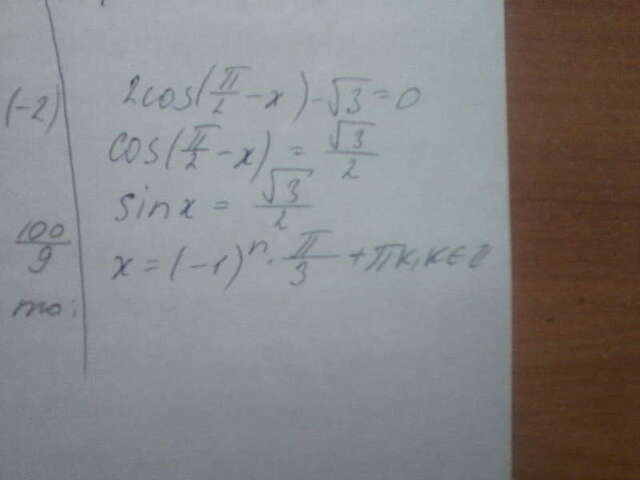 (-2)
2cos(π/2 - x) - √3 = 0
cos(π/2 - x) = √3/2
sinx = √3/2
100/9
x = (-1)ⁿ · π/3 + πk, k ∈
то: